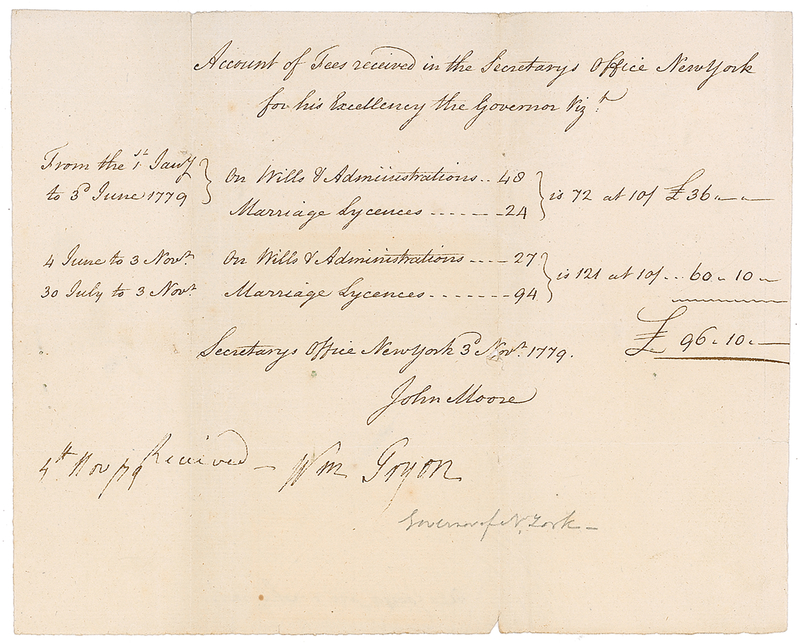 Account of Fees received in the Secretarys Office New York
for his Excellency the Governor Vizt
From the 1st Jany
to 3d June 1779
On Wills & Administrations .. 48
Marriage Lycences ------- 24
is 72 at 10/ £36 " "
4 June to 3 Novr
On Wills & Administrations ---- 27
30 July to 3 Novr
Marriage Lycences ------- 94
is 121 at 10/ ... 60 " 10 "
£ 96 " 10 "
Secretarys Office New York 3d Novr 1779.
John Moore
4th Nov 79 Received — Wm Tryon
Governor of N. York —